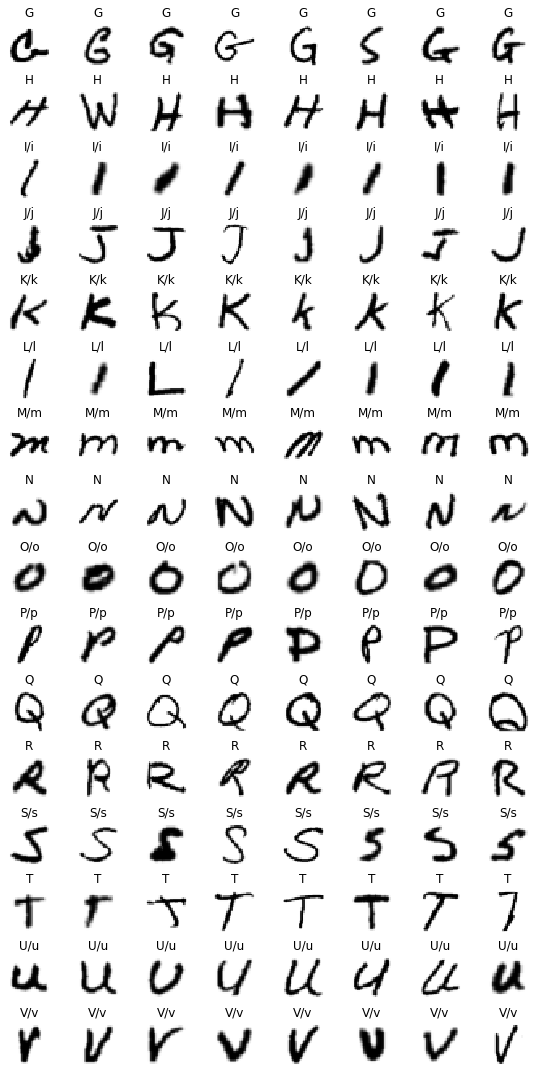 G G G G G G G G
G G G G G S G G
H H H H H H H H
H W H H H H H H
I/i I/i I/i I/i I/i I/i I/i I/i
I I I I I I I I
J/j J/j J/j J/j J/j J/j J/j J/j
J J J J J J J J
K/k K/k K/k K/k K/k K/k K/k K/k
K K K K k K K K
L/l L/l L/l L/l L/l L/l L/l L/l
l l L l l l l l
M/m M/m M/m M/m M/m M/m M/m M/m
m m m m m m m m
N N N N N N N N
N N N N N N N N
O/o O/o O/o O/o O/o O/o O/o O/o
O O O O O O O O
P/p P/p P/p P/p P/p P/p P/p P/p
P P P P P P P P
Q Q Q Q Q Q Q Q
Q Q Q Q Q Q Q Q
R R R R R R R R
R R R R R R R R
S/s S/s S/s S/s S/s S/s S/s S/s
S S S S S S S S
T T T T T T T T
T T T T T T T T
U/u U/u U/u U/u U/u U/u U/u U/u
u U U U U U U u
V/v V/v V/v V/v V/v V/v V/v V/v
V V V V V V V V